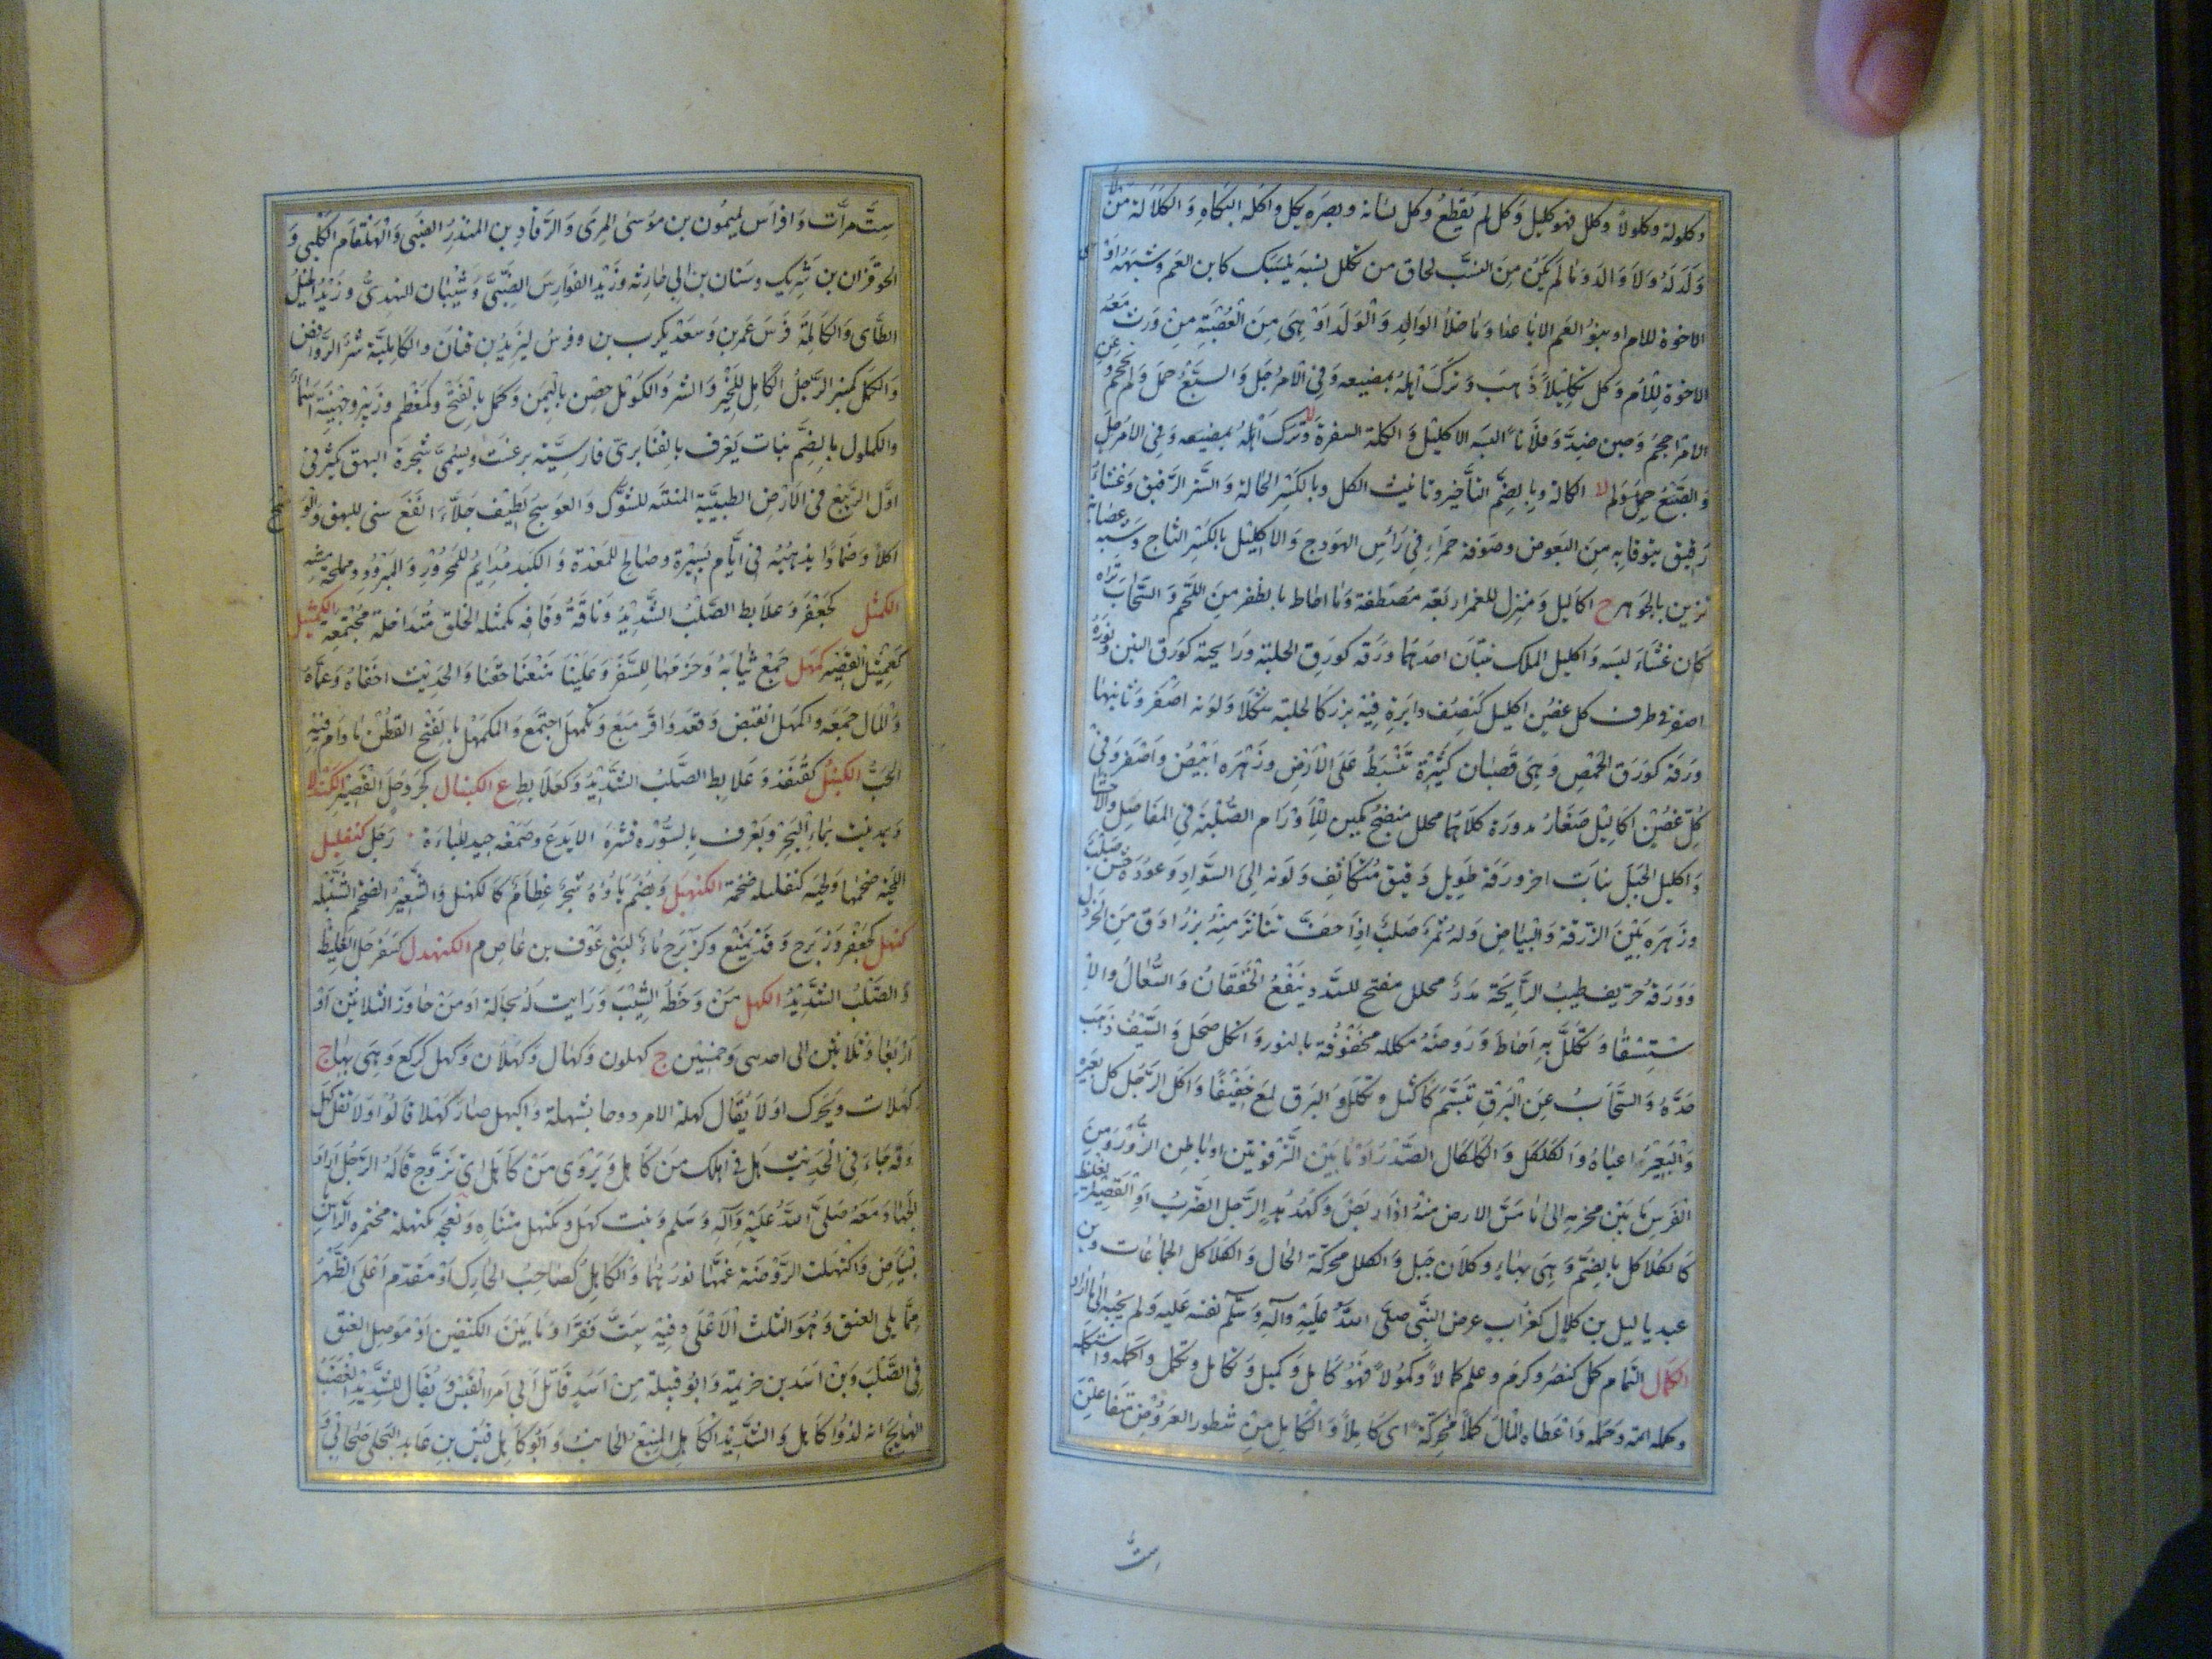 وكلولة وكلولا وكلل فهو كليل وكل لم يقطع وكل لسانه وبصره يكل واكله البكاء والكلالة من لا
ولد له ولا والد وما لم يكن من النسب لحاق من تكلل نسبه بنسبك كابن العم وشبهه او
الاخوة للام او بنو العم الاباعد او ما خلا الوالد والولد او هي من العصبة من ورث معه
الاخوة للام وكل تكليلا ذهب وترك اهله بمضيعة وفي الامر جد والسبع حمل ولم يحجم وعن
الامر احجم وجبن ضد وفلانا البسه الاكليل والكلة الشفرة وترك اهله بمضيعه وفي الامر حمل
والضبع حمل ولم لا الكالة وبالضم التأخير وتانيث الكل وبالكسر الحالة والستر الرقيق وغشاء
رقيق يتوقى به من البعوض وصوفة حمراء في رأس الهودج والاكليل بالكسر التاج وشبه عصابة
تزين بالجوهر ج اكاليل ومنزل للقمر اربعة مصطفة وما احاط بالظفر من اللحم والسحاب تراه
كان غشاء لبسه واكليل الملك نبتان احدهما ورقه كورق الحلبة ورايحته كورق التين ونوره
اصفر في طرف كل غصن اكليل كنصف دايرة فيه بزر كالحلبة شكلا ولونه اصفر وثانيهما
ورقه كورق الحمص وهي قضبان كثيرة تنبسط على الارض وزهره ابيض واصفر وفي
كل غصن اكاليل صغار مدورة كلاهما محلل منضج ملين للاورام الصلبة في المفاصل والاحشا
واكليل الجبل نبات اخر ورقه طويل دقيق متكاثف ولونه الى السواد وعوده خشن صلب
وزهره بين الزرقة والبياض وله ثمر صلب اذا جف تناثر منه بزر ادق من الخردل
وورقه حريف طيب الرايحة مدر محلل مفتح للسدد ينفع الخفقان والسعال والا
ستسقا وتكلل به احاط وروضة مكللة محفوفة بالنور وانكل ضحك والسيف ذهب
حده والسحاب عن البرق تبسم كاكتل وتكلل والبرق لمع خفيفا واكل الرجل كل بعيره
والبعير اعياه والكلكل والكلكال الصدر او ما بين الترقوتين او باطن الزور ومن
الفرس ما بين محزمه الى ما مس الارض منه اذا ربض وكهدهد الرجل الضرب او القصير الغليظ
كالكلاكل بالضم وهي بهاء وكلان جبل والكلل محركة الحال والكلاكل الجماعات وبن
عبد ياليل بن كلال كغراب عرض النبي صلى الله عليه وآله وسلم نفسه عليه ولم يجبه الى ما اراد
الكمال التمام كمل كنصر وكرم وعلم كمالا وكمولا فهو كامل وكميل وتكامل وتكمل واكمله واستكمله
وكمله اتمه وجمله واعطاه المال كملا محركة اى كاملا والكامل من شطور العروض متفاعلن
ست
ست مرات وافراس لميمون بن موسى المرى والرقاد بن المنذر الضبى والهلقام الكلبى و
الحوفزان بن شريك وسنان بن ابي حارثه وزيد الفوارس الضبي وشيبان النهدى وزيد الخيل
الطاى والكاملة فرس عمر بن وسعد يكرب بن وفرس ليزيد بن قنان والكاملية شر الروافض
والكمل كمنبر الرجل الكامل للخير والشر والكومل حصن باليمن وكمل بالفتح وكمعظم وزبير وجهينة اسماء
والكملول بالضم نبات يعرف بالقنابرى فارسية برغشت ويسمى شجرة البهق يكثر في
اول الربيع في الارض الطيبة المنبتة للشوك والعوسج لطيف جلاء انفع شى للبهق والوضح
اكلا وضمادا يذهبه في ايام يسيرة وصالح للمعدة والكبد ملايم للمحرور والمبرود ومملحه مشه
الكمثل كجعفر وعلابط الصلب الشديد وناقة وقافه مكمثلة الخلق متداخلة مجتمعة الكمثيل
كعميثل القصير كمهل جمع ثيابه وحزمها للسفر وعلينا منعنا حقنا والحديث اخفاه وعماه
والمال جمعه واكمهل انقبض وقعد واقر مبع وتكمهل اجتمع والمكمهل بالفتح القطن ما دام فيه
الحب الكنبل كقنفذ وعلابط الصلب الشديد وكعلابط ع الكنتال كجردحل القصير الكندلا
وبمد نبت بماء البحر ويعرف بالسوره قشره الايدع وصمغه جيد للباءة رجل كنفليل
اللحية ضخمها ولحية كنفليلة ضخمة الكنهبل ويضم باؤه شجر عظام كالكهبل والشعير الضخم السنبلة
كنهل كجعفر وزبرج وقد يمنع وكزبرج ماء لبني عوف بن عاصم الكنهدل كسفرجل الغليظ
والصلب الشديد الكهل من وخطه الشيب ورايت له بجالة او من جاوز الثلاثين او
اربعا وثلاثين الى احدى وخمسين ج كهلون وكهال وكهلان وكهل كركع وهي بهاء ج
كهلات ويحرك او لا يقال كهلة الا مزدوجا بشهلة واكتهل صار كهلا قالوا ولا تقل كهل
وقد جاء في الحديث هل في اهلك من كاهل ويروى من كاهل اى تزوج قاله الرجل اراد
الجهاد معه صلى الله عليه وآله وسلم ونبت كهل ومكتهل متناه ونعجة مكتهلة مختمرة الراس
بالبياض واكتهلت الروضة عمها نورها والكاهل كصاحب الحارك او مقدم اعلى الظهر
مما يلى العنق وهو الثلث الاعلى وفيه ست فقر او ما بين الكتفين او موصل العنق
في الصلب وبن اسد بن خزيمة وابو قبيلة من اسد قاتل ابي امرا القيس ويقال للشديد الغضب
الهايج انه لذو كاهل والشديد الكاهل المنيع الجانب وابو كاهل قيس بن عايد البجلى صحابي و